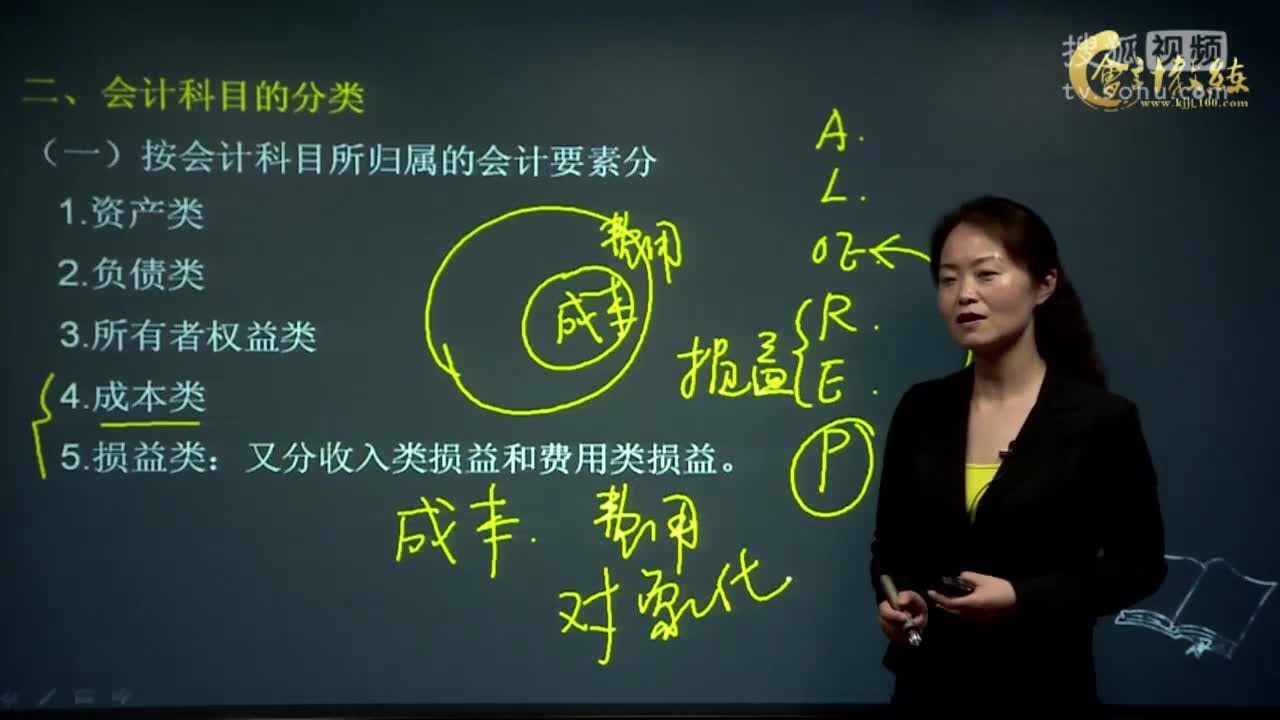 搜狐视频
tv.sohu.com
会计教练
www.kjjl100.com
二、会计科目的分类
（一）按会计科目所归属的会计要素分
1.资产类
2.负债类
3.所有者权益类
4.成本类
5.损益类：又分收入类损益和费用类损益。
费用
成本
A.
L.
OE.
损益
R.
E.
P
成本. 费用
对象化